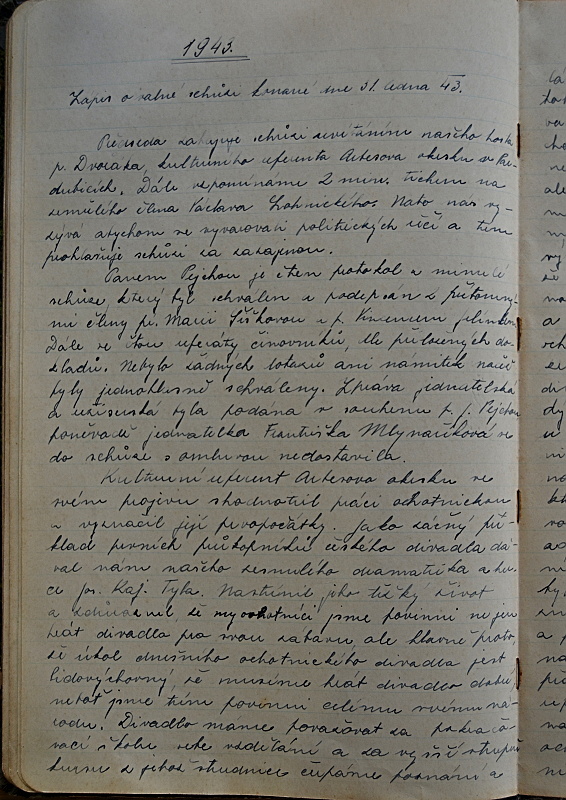 1943.
Zápis o valné schůzi konané dne 31. ledna 43.
Předseda zahajuje schůzi uvítáním našeho hosta
p. Dvořáka, kulturního referenta Arbesova okrsku v Par-
dubicích. Dále vzpomínáme 2 min. tichem na
zesnulého člena Václava Nato nás vy-
zývá abychom se vyvarovali politických řečí a tím
prohlašuje schůzi za zahájenou.
Panem Pejchou je čten protokol z minulé
schůze, který byl schválen a podepsán z přítomný-
mi členy pí. Marií Šiškovou a p.
Dále se čtou referáty činovníků, dle přiložených do-
kladů. Nebylo žádných dotazů ani námitek načež
byly jednohlasně schváleny. Zpráva jednatelská
a byla podána v souhrnu p. J. Pejchou
poněvadž jednatelka Františka Mlynaříková se
do schůze s omluvou nedostavila.
Kulturní referent Arbesova okrsku ve
svém projevu zhodnotil práci ochotnickou
a vyznačil její prvopočátky. Jako zářný pří-
klad prvních průkopníků českého divadla dá-
val nám našeho zesnulého dramatika a her-
ce Jos. Kaj. Tyla. Nastínil jeho těžký život
a zdůraznil, že my ochotníci jsme povinni ne jen
hrát divadla pro svou zábavu, ale hlavně proto,
že úkol dnešního ochotnického divadla jest
lidovýchovný, že musíme hrát divadlo dobře,
neboť jsme tím povinni celému svému ná-
rodu. Divadlo máme považovat za pokračo-
vací školu sebe vzdělání a za vyšší stupeň
z jehož studnice čerpáme poznání a